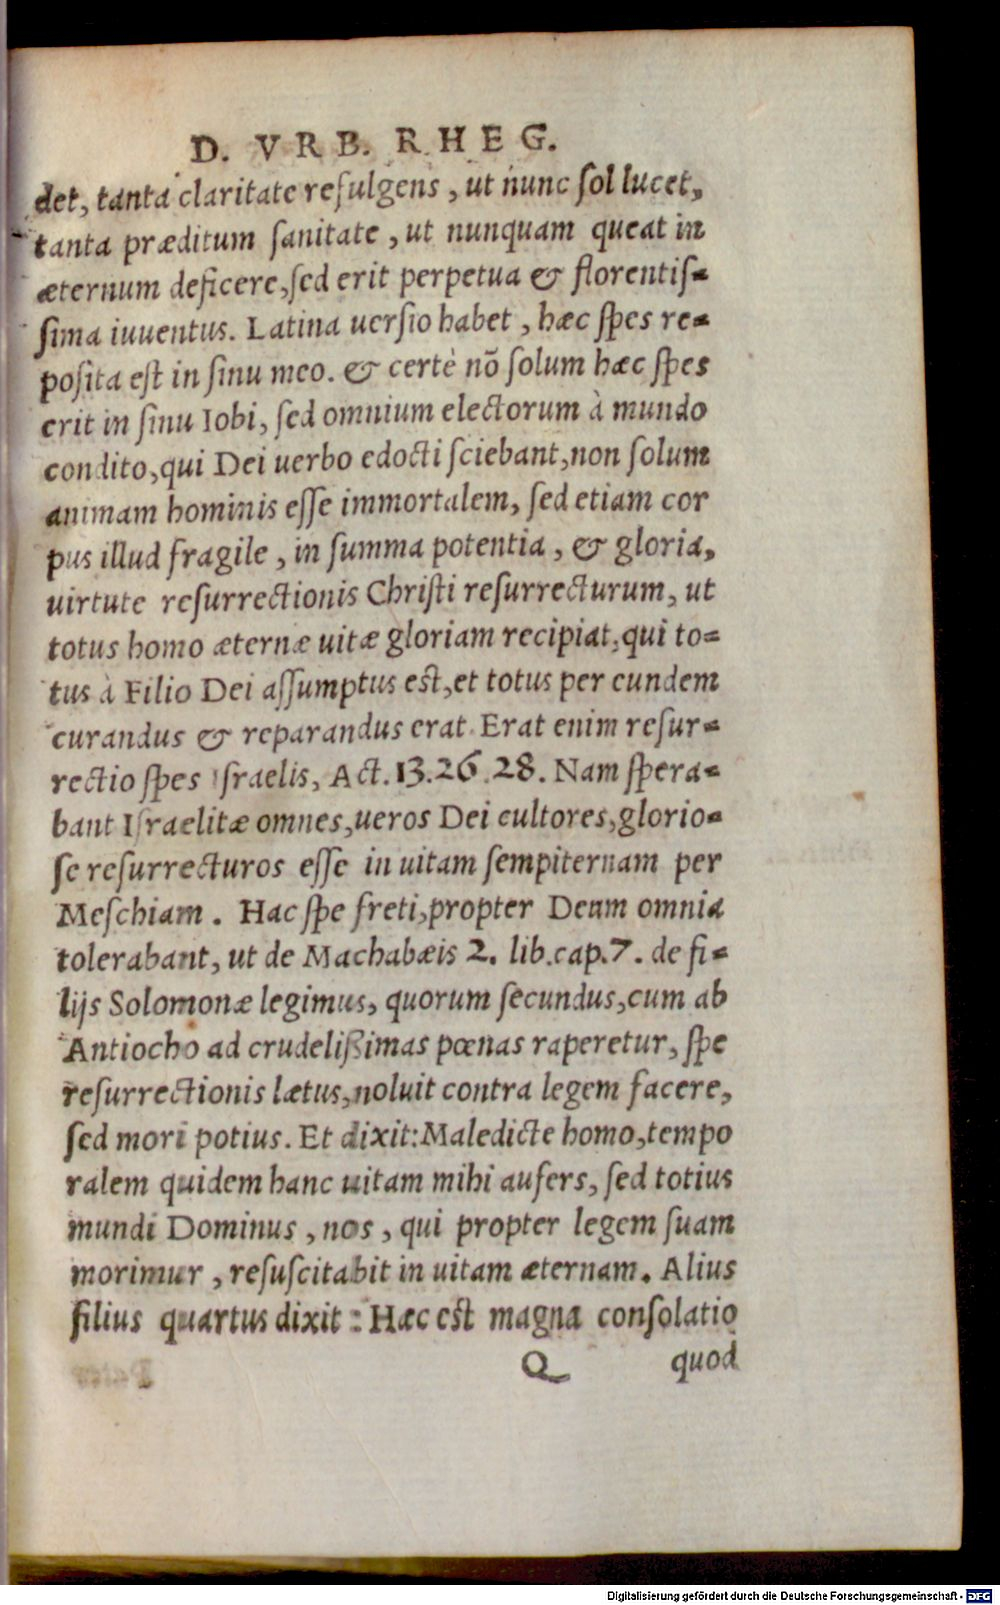 D. VRB. RHEG.
det, tanta claritate refulgens, ut nunc ſol lucet,
tanta præditum ſanitate, ut nunquam queat in
æternum deficere, ſed erit perpetua & florentiſ-
ſima iuuentus. Latina uerſio habet, hæc ſpes re-
poſita eſt in ſinu meo. & certè nō ſolum hæc ſpes
erit in ſinu Iobi, ſed omnium electorum à mundo
condito, qui Dei uerbo edocti ſciebant, non ſolum
animam hominis eſſe immortalem, ſed etiam cor
pus illud fragile, in ſumma potentia, & gloria,
uirtute reſurrectionis Chriſti reſurrecturum, ut
totus homo æternæ uitæ gloriam recipiat, qui to-
tus à Filio Dei aſſumptus eſt, et totus per eundem
curandus & reparandus erat. Erat enim reſur-
rectio ſpes Iſraelis, Act. 13.26.28. Nam ſpera-
bant Iſraelitæ omnes, ueros Dei cultores, glorio-
ſe reſurrecturos eſſe in uitam ſempiternam per
Meſchiam. Hac ſpe freti, propter Deum omnia
tolerabant, ut de Machabæis 2. lib. cap. 7. de fi-
lijs Solomonæ legimus, quorum ſecundus, cum ab
Antiocho ad crudelißimas pœnas raperetur, ſpe
reſurrectionis lætus, noluit contra legem facere,
ſed mori potius. Et dixit: Maledicte homo, tempo
ralem quidem hanc uitam mihi aufers, ſed totius
mundi Dominus, nos, qui propter legem ſuam
morimur, reſuſcitabit in uitam æternam. Alius
filius quartus dixit: Hæc eſt magna conſolatio
Q quod
Digitalisierung gefördert durch die Deutsche Forschungsgemeinschaft - DFG